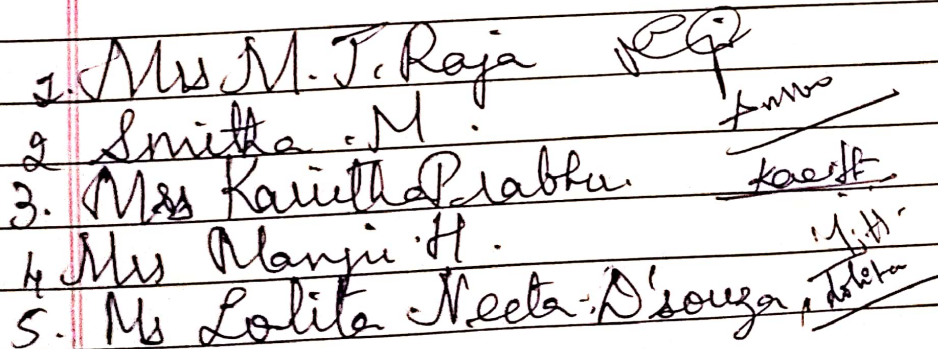 1. Mrs M. J. Raja
2 Smitha . M .
3. Mrs Kavitha Prabhu.
4 Mrs Manju . H .
5. Ms Lolita Neeta D'souza, Lolita